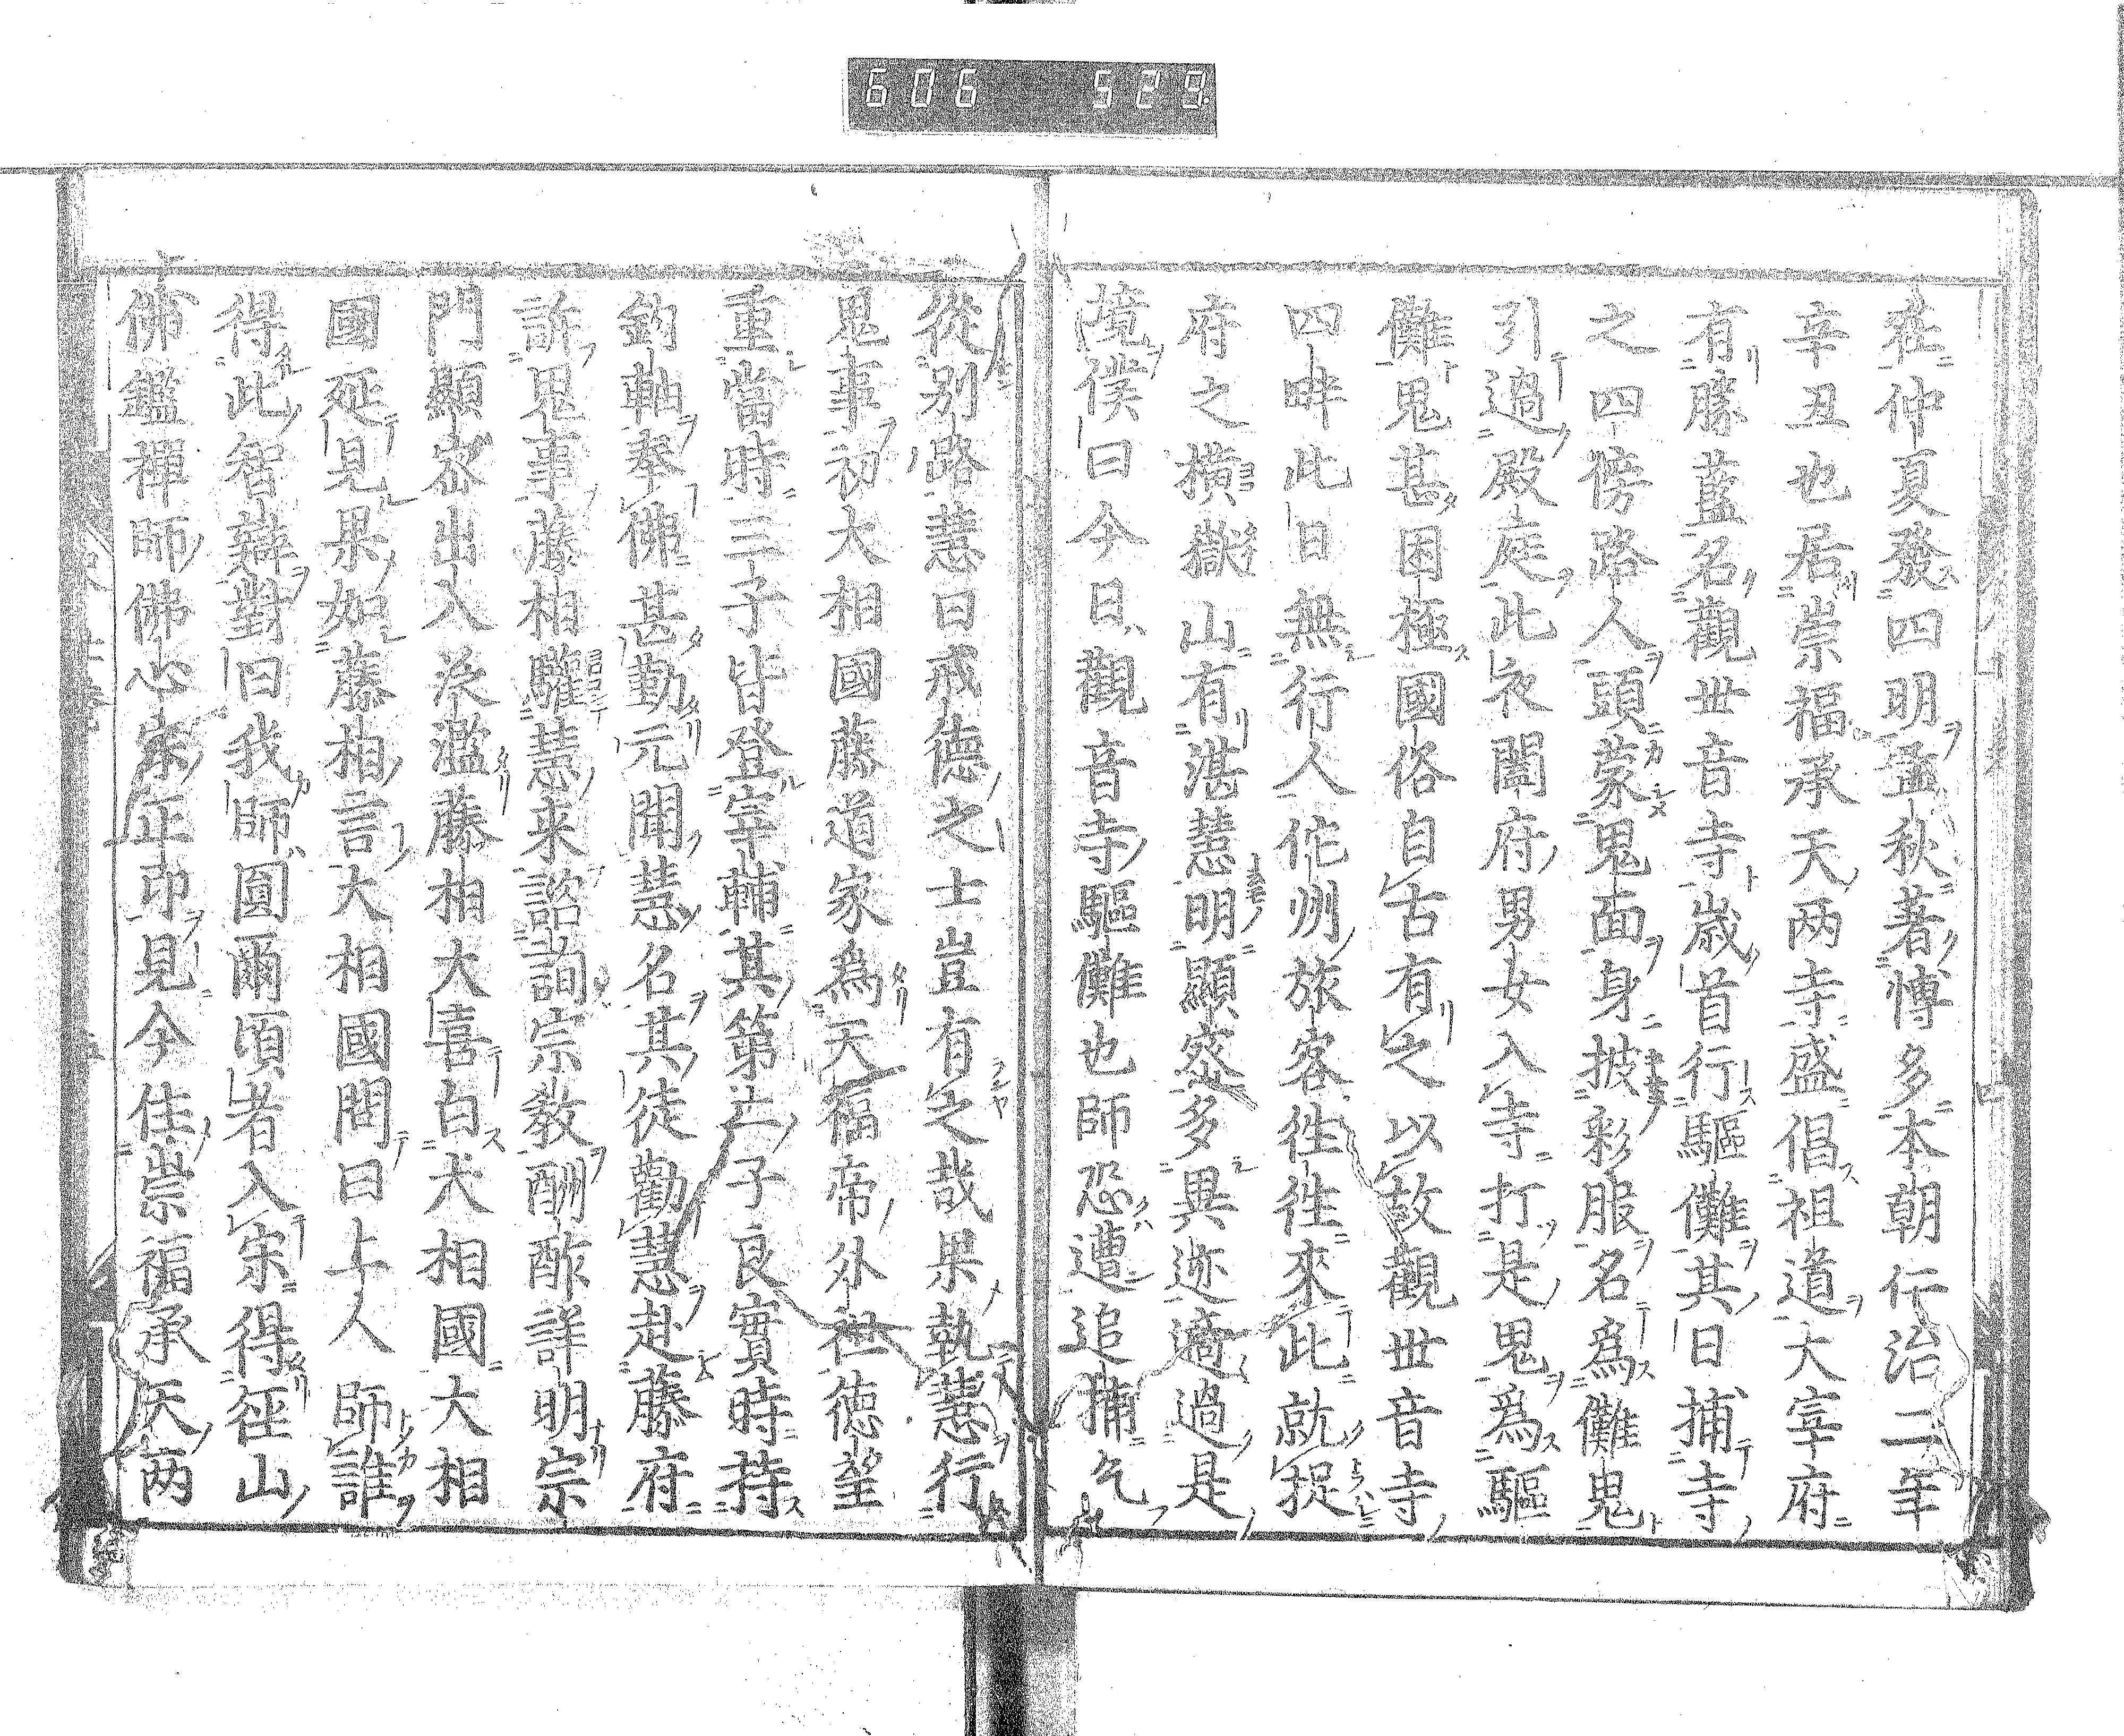 606 529
在仲夏發四明孟秋著博多本朝仁治二年
辛丑也居崇福承天两寺盛倡祖道大宰府
有勝藍名觀世音寺歳首行驅儺其日捕寺
之四傍路人頭蒙鬼面身披彩服名爲儺鬼
引過殿庭此夜闔府男女入寺打是鬼爲驅
儺鬼甚困極國俗自古有之以故觀世音寺
四畔此日無行人佗州旅客徃徃來此就捉
府之横嶽山有湛慧明顯密多異迹適過是
境僕曰今日觀音寺驅儺也師恐遭追捕乞
從别路慧曰戒德之士豈有之哉果執慧行
鬼事初大相國藤道家爲天福帝外祖德望
重當時三子皆登宰輔其第二子良實時持
鈞軸奉佛甚勤元聞慧名其徒勸慧赴藤府
訴鬼事藤相驩慧来諮詢宗教酬酢詳明宗
門顯密出入泛濫藤相大喜白大相國大相
國延見果如藤相言大相國問曰上人師誰
得此智辯對曰我師圓爾頃者入宋得徑山
佛鑑禪師佛心宗正印見今住崇福承天两